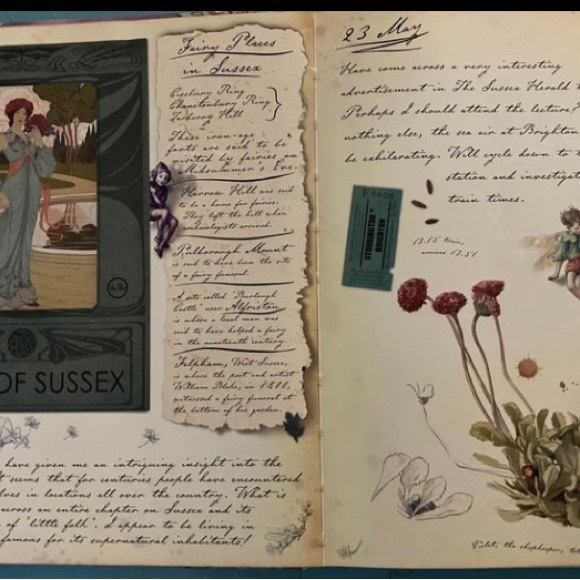 OF SUSSEX
Fairy Places
in Sussex
Cissbury Ring
Chanctonbury Ring
Torberry Hill
These iron-age
forts are said to be
visited by fairies on
Midsummer's Eve.
Harrow Hill was said
to be a home for fairies.
They left the hill when
archaeologists arrived.
Pulborough Mount
is said to have been the site
of a fairy funeral.
A site called 'Burlough
Castle' near Alfriston
is where a local man was
said to have helped a fairy
in the nineteenth century.
Felpham, West Sussex,
is where the poet and artist
William Blake, in 1800,
witnessed a fairy funeral at
the bottom of his garden.
have given me an intriguing insight into the
t seems that for centuries people have encountered
lves in locations all over the country. What is
across an entire chapter on Sussex and its
of 'little folk'. I appear to be living in
famous for its supernatural inhabitants!
23 May
Have come across a very interesting
advertisement in The Sussex Herald
Perhaps I should attend the lecture?
nothing else, the sea air at Brighton
be exhilarating. Will cycle down to t
station and investiga
train times.
STORRINGTON
BRIGHTON
13.15 train,
arrives 13.54
the shopkeeper,